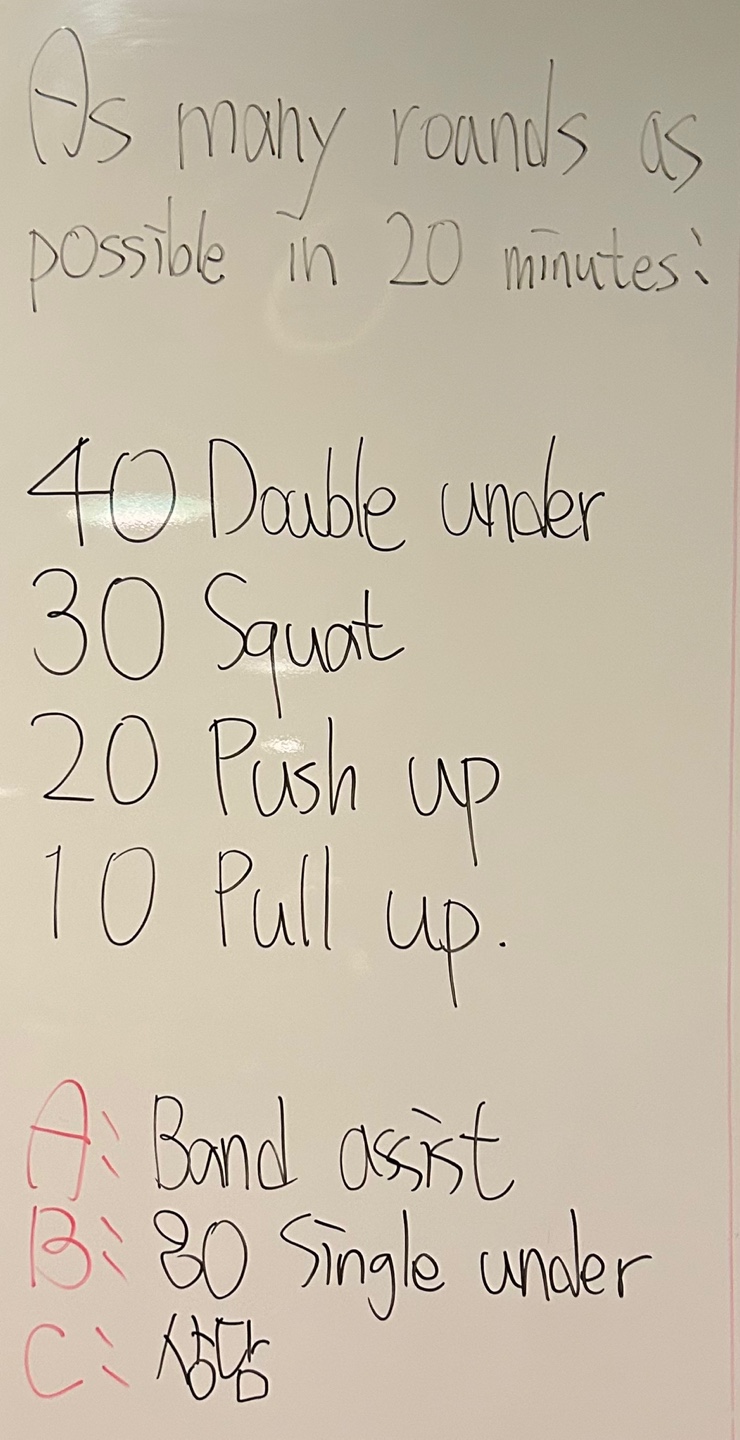 As many rounds as
possible in 20 minutes:
40 Double under
30 Squat
20 Push up
10 Pull up.
A: Band assist
B: 80 Single under
C: 상담